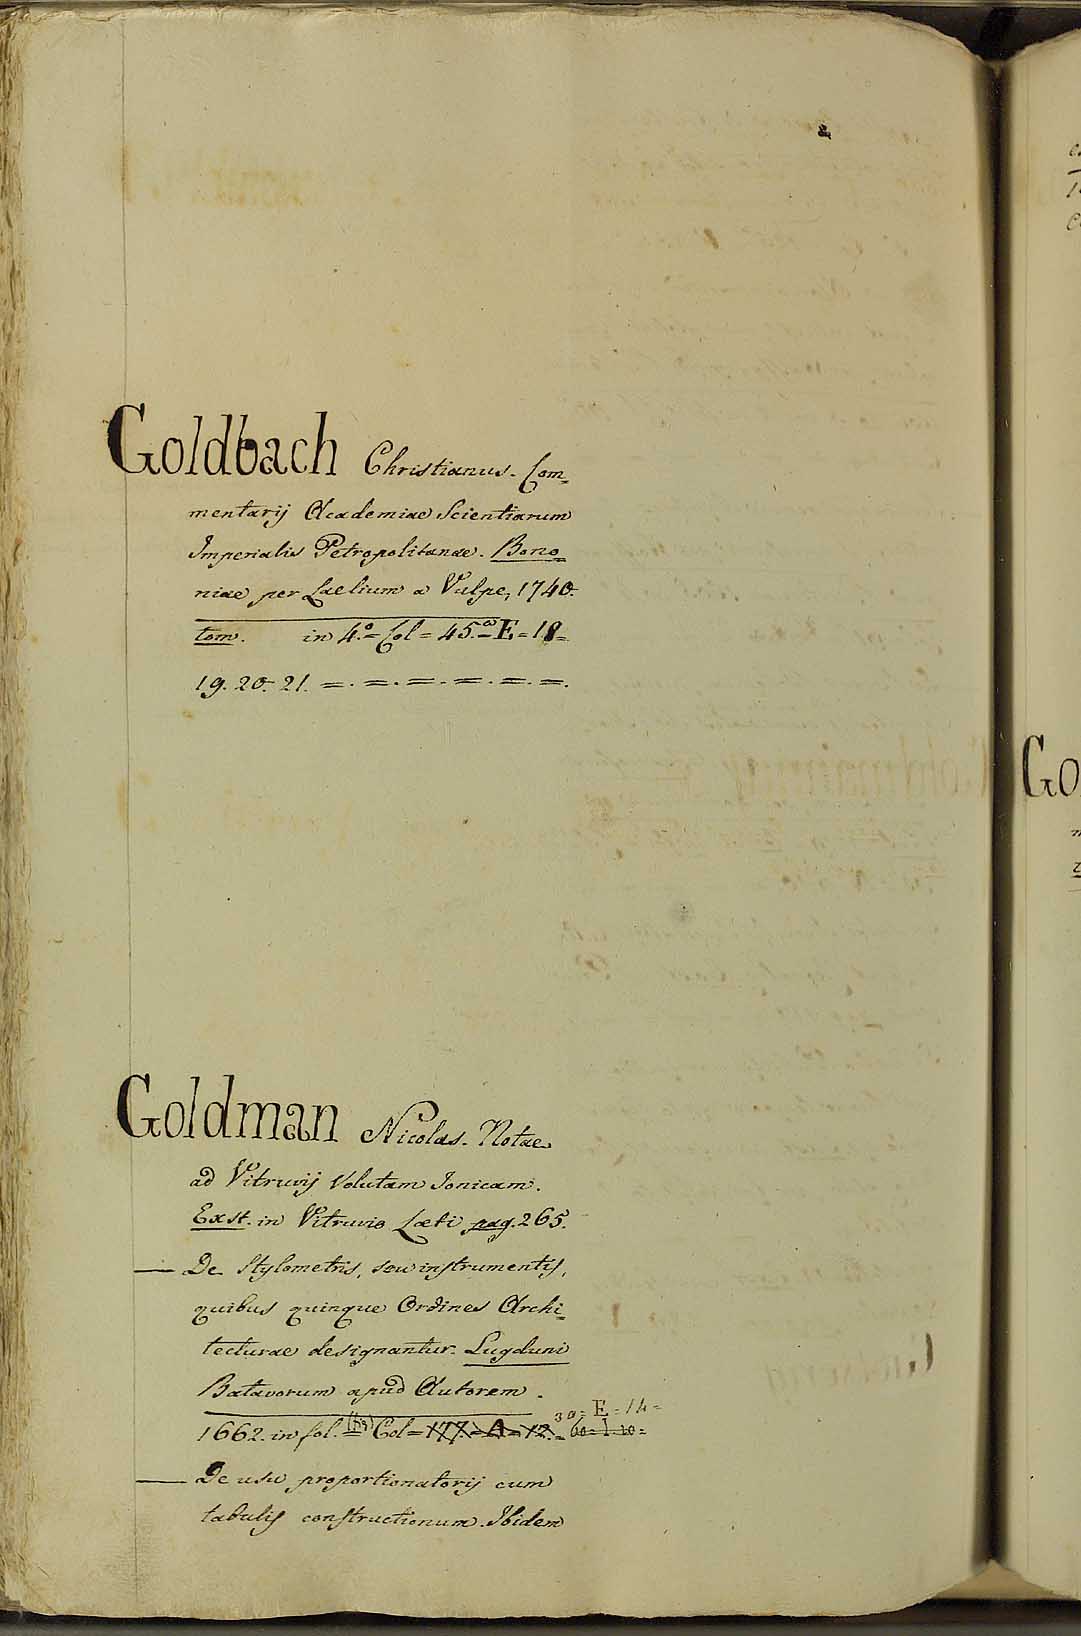 Goldbach Christianus. Com=
mentarij Academiae Scientiarum
Imperialis Petropolitanae. Bono=
niae per Laelium a Vulpe, 1740.
tom. in 4.º = Col = 45.ª = E = 18 =
19. 20. 21. = . = . = . = . = . = .
Goldman Nicolas. Notae
ad Vitruvij Volutam Ionicam.
Exst. in Vitruvio Læti pag. 265.
— De Stylometris, seu instrumentis,
quibus quinque Ordines Archi=
tecturae designantur. Lugduni
Batavorum apud Autorem.
30 = E = 14 =
1662. in fol. (fig) Col = 177. = A = 12. = 60 = 1. 10 =
— De usu proportionatorij cum
tabulis constructionum. Ibidem
Go